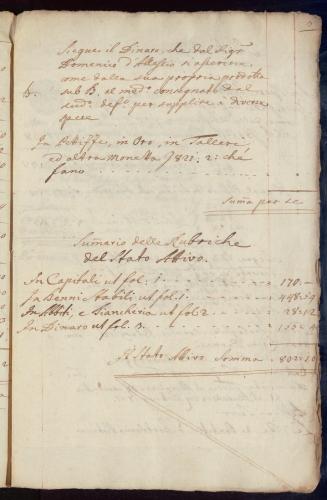 Segue il Dinaro, che dal Sigr
Domenico d'Alessio si asserisce,
come dalla sua propria prodotta
B. sub B, al medo consegnato dal
sudo defto per supplire à diverse
spese
In Pettiffe, in Oro, in Talleri
ed altra Monetta f 821: 2: che
fano
Suma per se
Sumario delle Rubriche
del Stato Attivo.
In Capitali ut fol. 1. 170.
In Benni Stabili ut fol. 1.
In Abiti, e Biancheria ut fol: 2 28:
In Dinaro ut fol. 3.
Il Stato Attivo Somma 802: